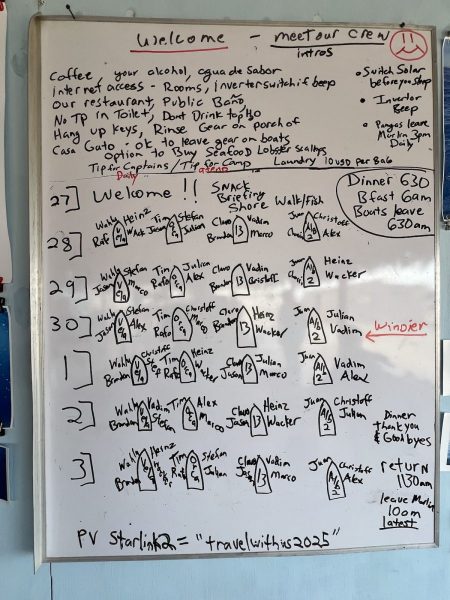 Welcome - meet our crew
intros
Coffee, your alcohol, agua de sabor
Internet access - Rooms, inverter switch if beep
Our restaurant, Public Baño
No TP in Toilet, Dont Drink tap H2O
Hang up keys, Rinse Gear on porch of
Casa Gato - ok to leave gear on boats
option to Buy Seafood Lobster scallops
Tip for Captains / Tip for Camp Laundry 10 USD per BAG
Daily
• Switch Solar
before you sleep
• Invertor
Beep
• Pangas leave
Marlin 3pm
Daily
Dinner 630
Bfast 6am
Boats leave
630am
27] Welcome !! SNACK
Briefing
Shore Walk/Fish
28] Wahly Heinz Tim Stefan Claro Vadim Juan Christoff
Rafe Julian Brandon 13 Marco A/b 2 Alex
29] Wahly Stefan Tim Julian Claro Vadim Juan Heinz
Jason Alex Brandon 13 A/b 2 Wacker
30] Wahly Stefan Tim Christoff Claro Heinz Juan Julian
Jason Alex Rafe Marco Brandon 13 Wacker A/b 2 Vadim
Windier
1] Wahly Christoff Tim Heinz Claro Julian Juan Vadim
Brandon Stef Rafe Wacker Jason 13 Marco A/b 2 Alex
2] Wahly Vadim Tim Alex Claro Heinz Juan Christoff
Brandon Stefan Marco Jason 13 Wacker A/b 2 Julian
Dinner
thank you
& Goodbyes
3] Wahly Heinz Tim Stefan Claro Vadim Juan Christoff
Brandon Rafe Julian Jason 13 Marco A/b 2 Alex
return
1130am
leave Marlin
10am
latest
PV Starlink2 = "travelwithus2025"